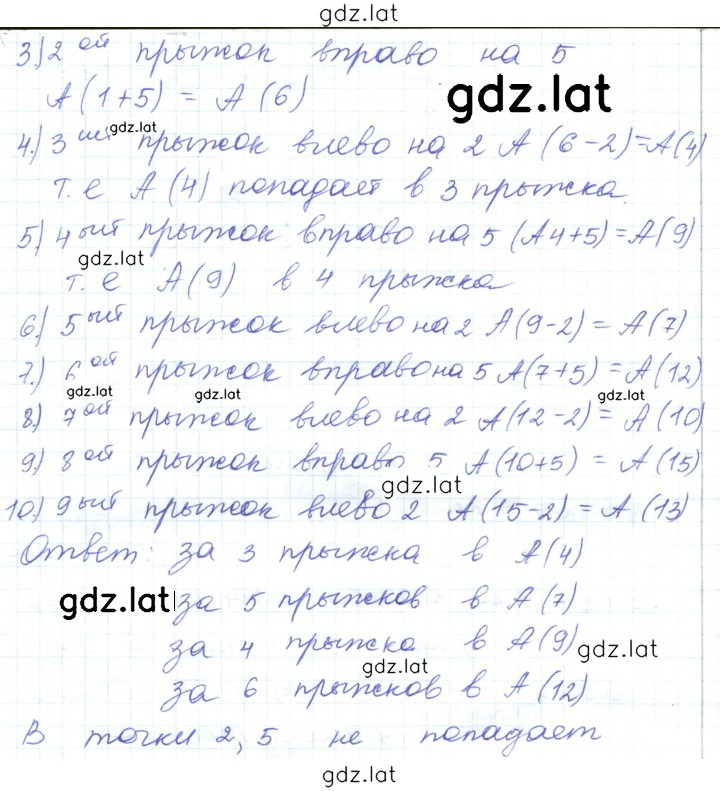 gdz.lat
3.) 2 ой прыжок вправо на 5
A(1+5) = A(6)
gdz.lat
gdz.lat
4.) 3 ий прыжок влево на 2 A(6-2)=A(4)
т.е A(4) попадает в 3 прыжка.
5) 4 ый прыжок вправо на 5 (A4+5)=A(9)
gdz.lat
т.е A(9) в 4 прыжка
6.) 5 ый прыжок влево на 2 A(9-2) = A(7)
7.) 6 ой прыжок вправо на 5 A(7+5)=A(12)
gdz.lat gdz.lat gdz.lat
8.) 7 ой прыжок влево на 2 A(12-2)= A(10)
9.) 8 ой прыжок вправо 5 A(10+5) = A(15)
gdz.lat
10.) 9 ый прыжок влево 2 A(15-2) = A(13)
Ответ: за 3 прыжка в A(4)
gdz.lat за 5 прыжков в A(7)
за 4 прыжка в A(9) gdz.lat
gdz.lat
за 6 прыжков в A(12)
В точки 2, 5 не попадает
gdz.lat